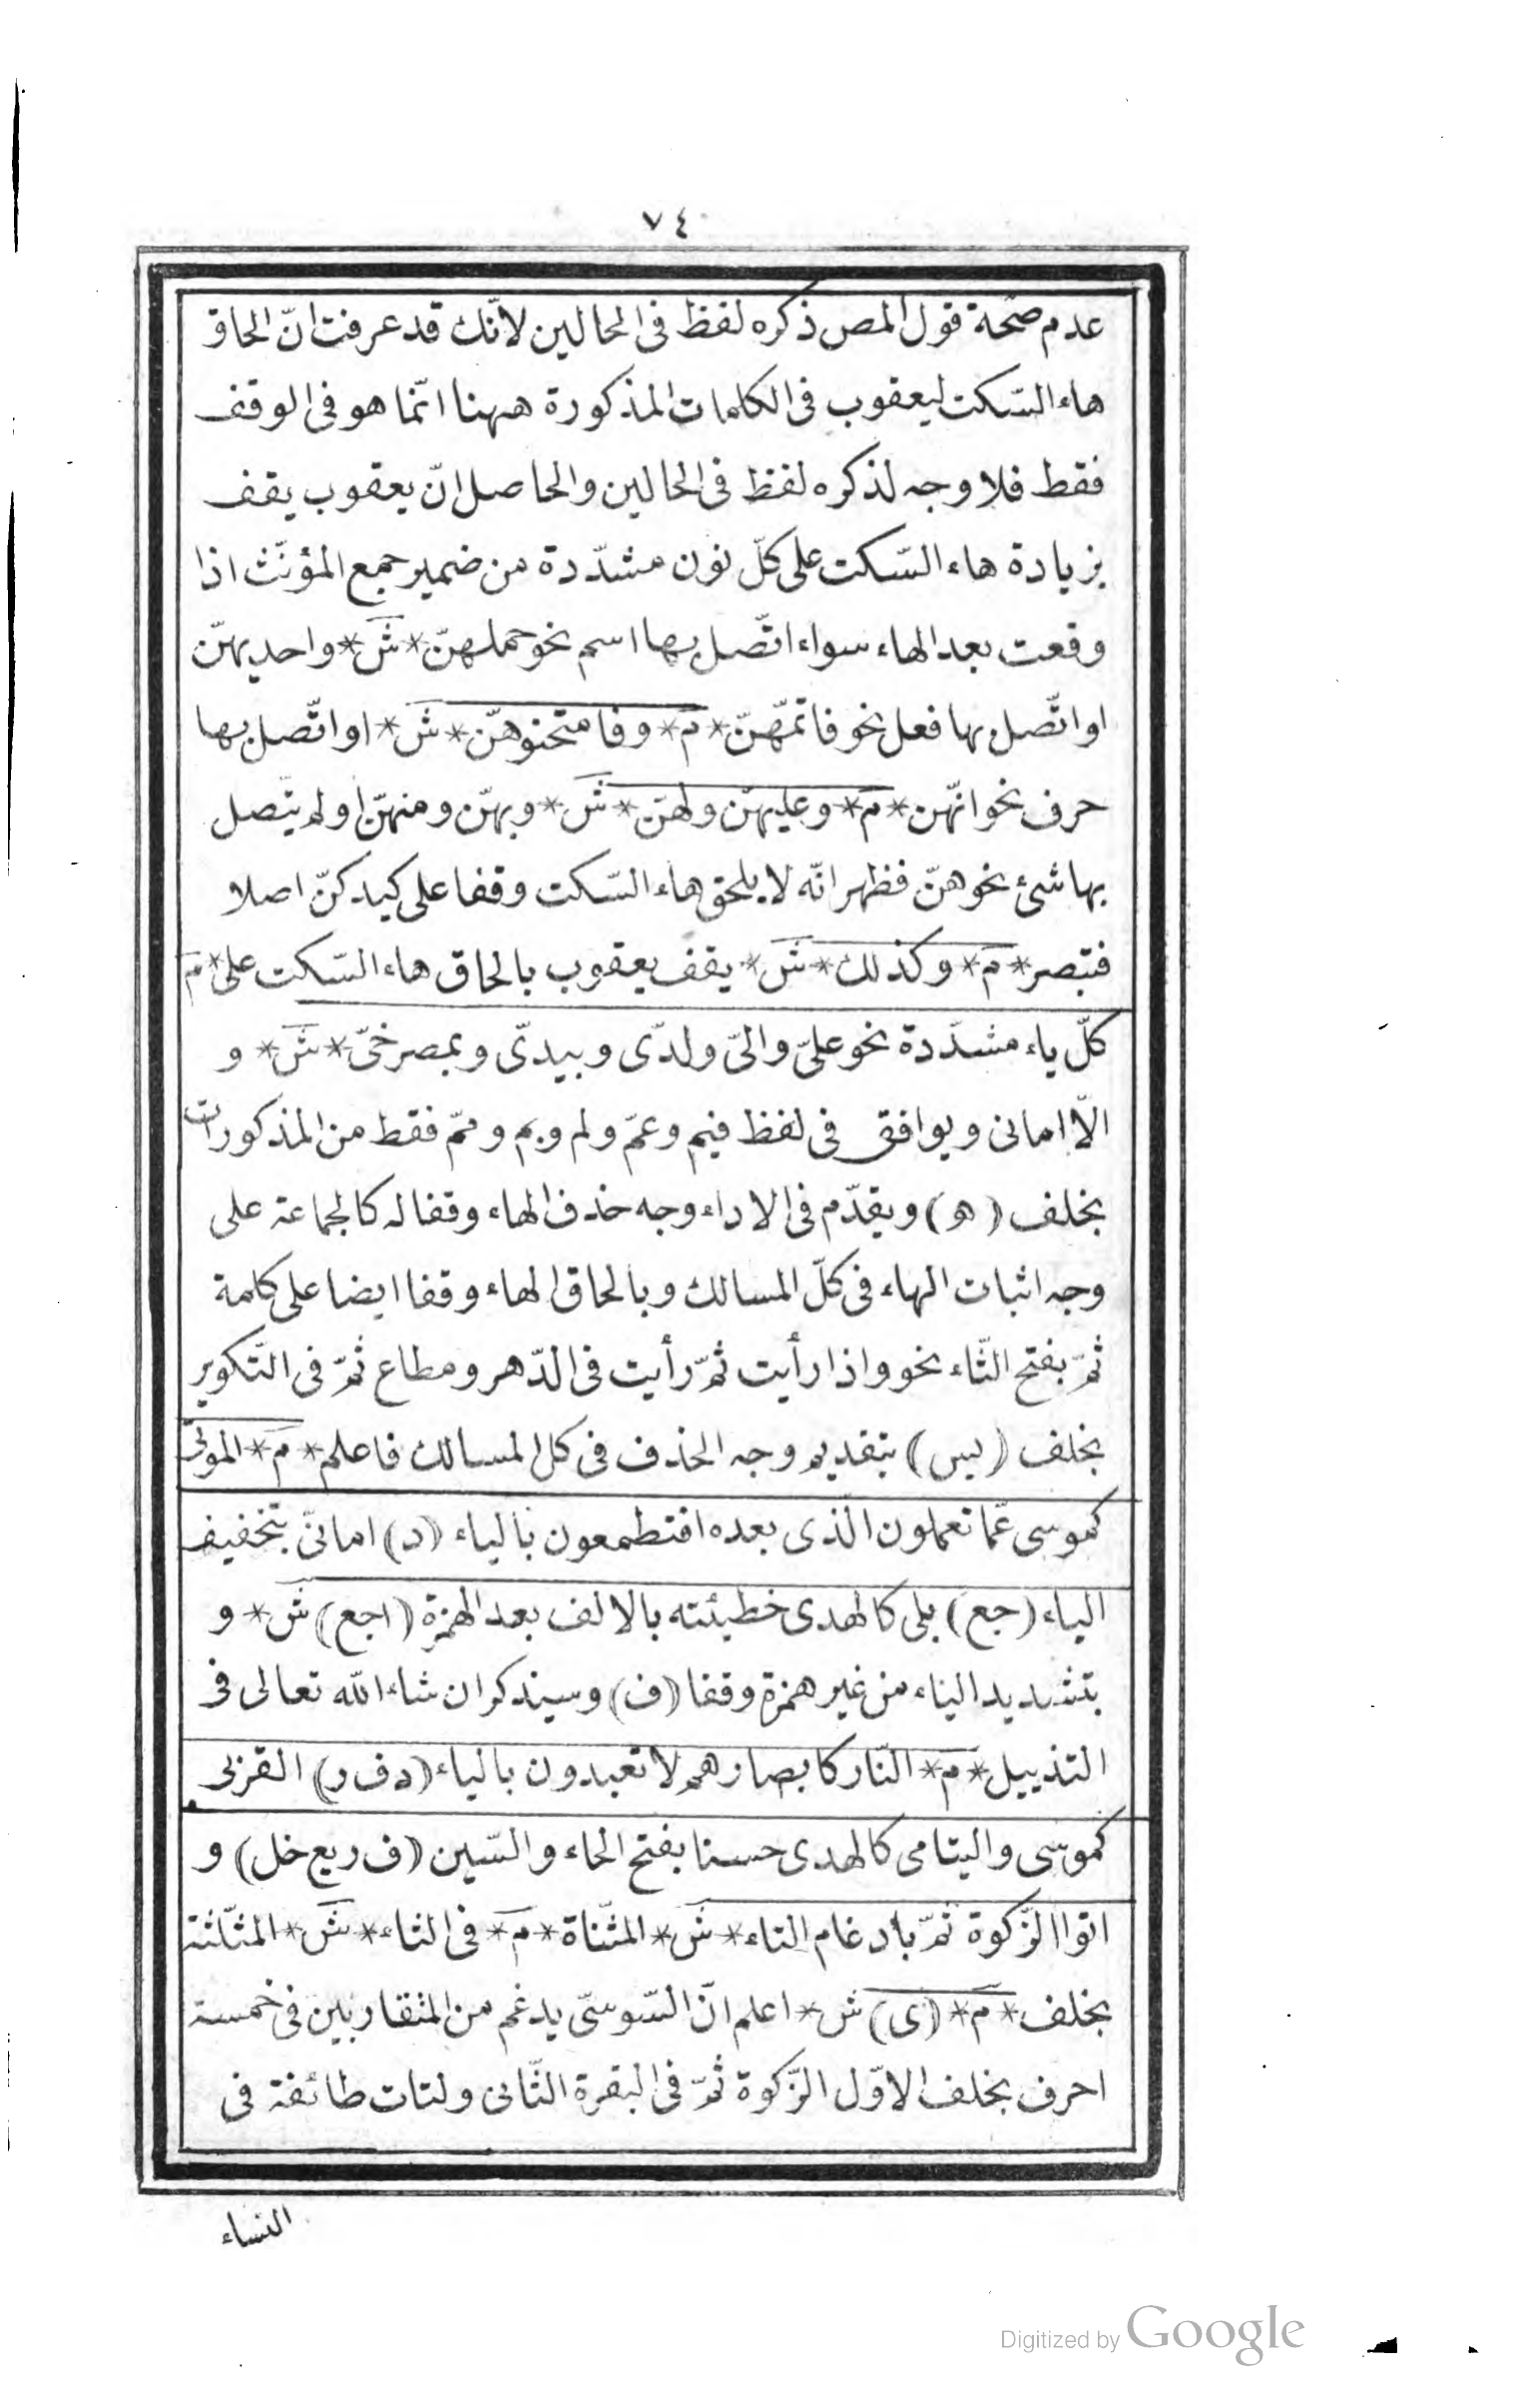 ٧٤
عدم صحّة قول المص ذكره لفظ فى الحالين لانّك قد عرفت انّ الحاق
هاء السّكت ليعقوب فى الكلمات المذكورة ههنا انّما هو فى الوقف
فقط فلا وجه لذكره لفظ فى الحالين والحاصل انّ يعقوب يقف
بزيادة هاء السّكت على كلّ نون مشدّدة من ضمير جمع المؤنّث اذا
وقعت بعد الهاء سواء اتّصل بها اسم نحو حملهنّ * ش * واحديهنّ
او اتّصل بها فعل نحو فاتمّهنّ * م * وفامتحنوهنّ * ش * او اتّصل بها
حرف نحو انّهن * م * وعليهنّ ولهنّ * ش * وبهنّ ومنهنّ او لم يتّصل
بها شئ نحو هنّ فظهر انّه لا يلحق هاء السّكت وقفا على كيدكنّ اصلا
فتبصر * م * وكذلك * ش * يقف يعقوب بالحاق هاء السّكت على * م
كلّ ياء مشدّدة نحو علىّ والىّ ولدىّ وبيدىّ وبمصرخىّ * ش * و
الّا امانى ويوافق فى لفظ فيم وعمّ ولم وبم وممّ فقط من المذكورات
بخلف (هو) ويقدّم فى الاداء وجه حذف الهاء وقفا له كالجماعة على
وجه اثبات الهاء فى كلّ المسالك وبالحاق الهاء وقفا ايضا على كلمة
ثمّ بفتح الثّاء نحو واذا رأيت ثمّ رأيت فى الدّهر ومطاع ثمّ فى التّكوير
بخلف (يس) بتقديم وجه الحذف فى كل المسالك فاعلم * م * الموتى
كموسى عمّا تعملون الّذى بعده افتطمعون بالياء (د) امانىّ بتخفيف
الياء (جع) بلى كالهدى خطيئته بالالف بعد الهمزة (اجع) ش * و
بتشديد الياء من غير همزة وقفا (ف) وسيذكر ان شاء الله تعالى فى
التذييل * م * النّار كابصارهم لا تعبدون بالياء (د ف ر) القربى
كموسى واليتامى كالهدى حسنا بفتح الحاء والسّين (ف ر يع خل) و
اتوا الزّكوة ثمّ بادغام التاء * ش * المثّناة * م * فى الثاء * ش * المثّلثة
بخلف * م * (ى) ش * اعلم انّ السّوسىّ يدغم من المتقاربين فى خمسة
احرف بخلف الاوّل الزّكوة ثمّ فى البقرة الثّانى ولتات طائفة فى
النساء
Digitized by Google